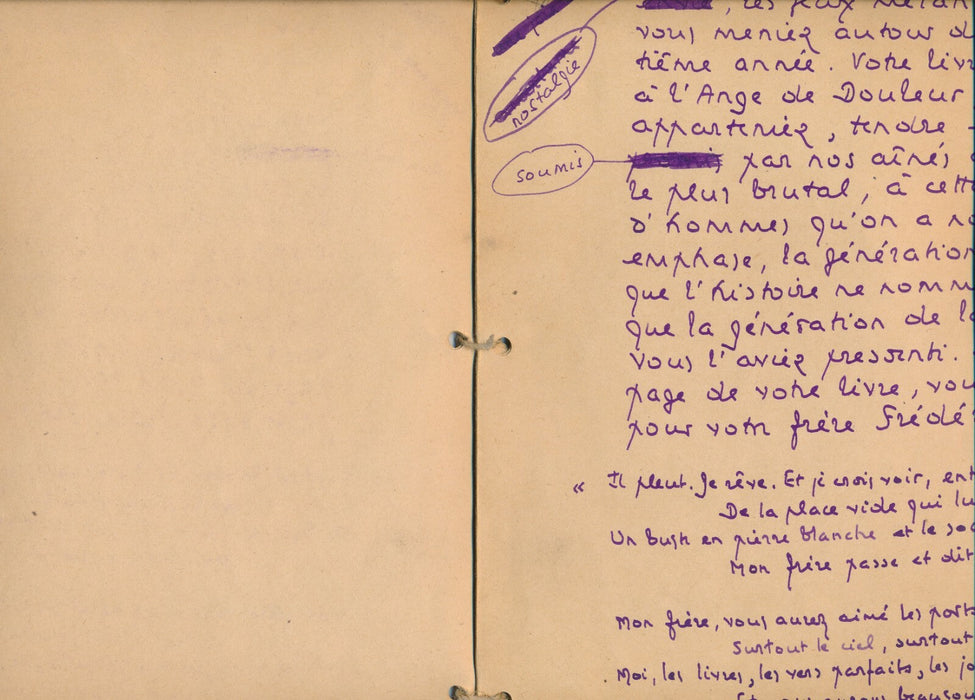 , les jeux mélan
vous meniez autour d
tième année. Votre livr
nostalgie
à l'Ange de Douleur
apparteniez, tendre
soumis
par nos aînés
le plus brutal, à cett
d'hommes qu'on a no
emphase, la génération
que l'histoire ne nomm
que la génération de la
vous l'aviez pressenti.
page de votre livre, vou
pour votre frère Frédé
« Il pleut. Je rêve. Et je crois voir, ent
De la place vide qui lu
Un buste en pierre blanche et le soc
Mon frère passe et dit
Mon frère, vous aurez aimé les ports
Surtout le ciel, surtout
Moi, les livres, les vers parfaits, les jo